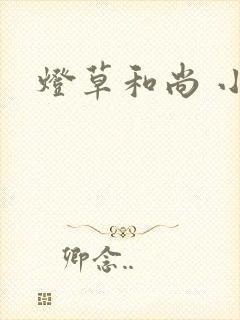 燈草和尚 小
卿念..